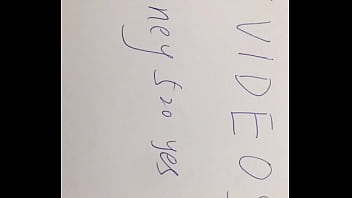 VIDEO
ney 520 yes